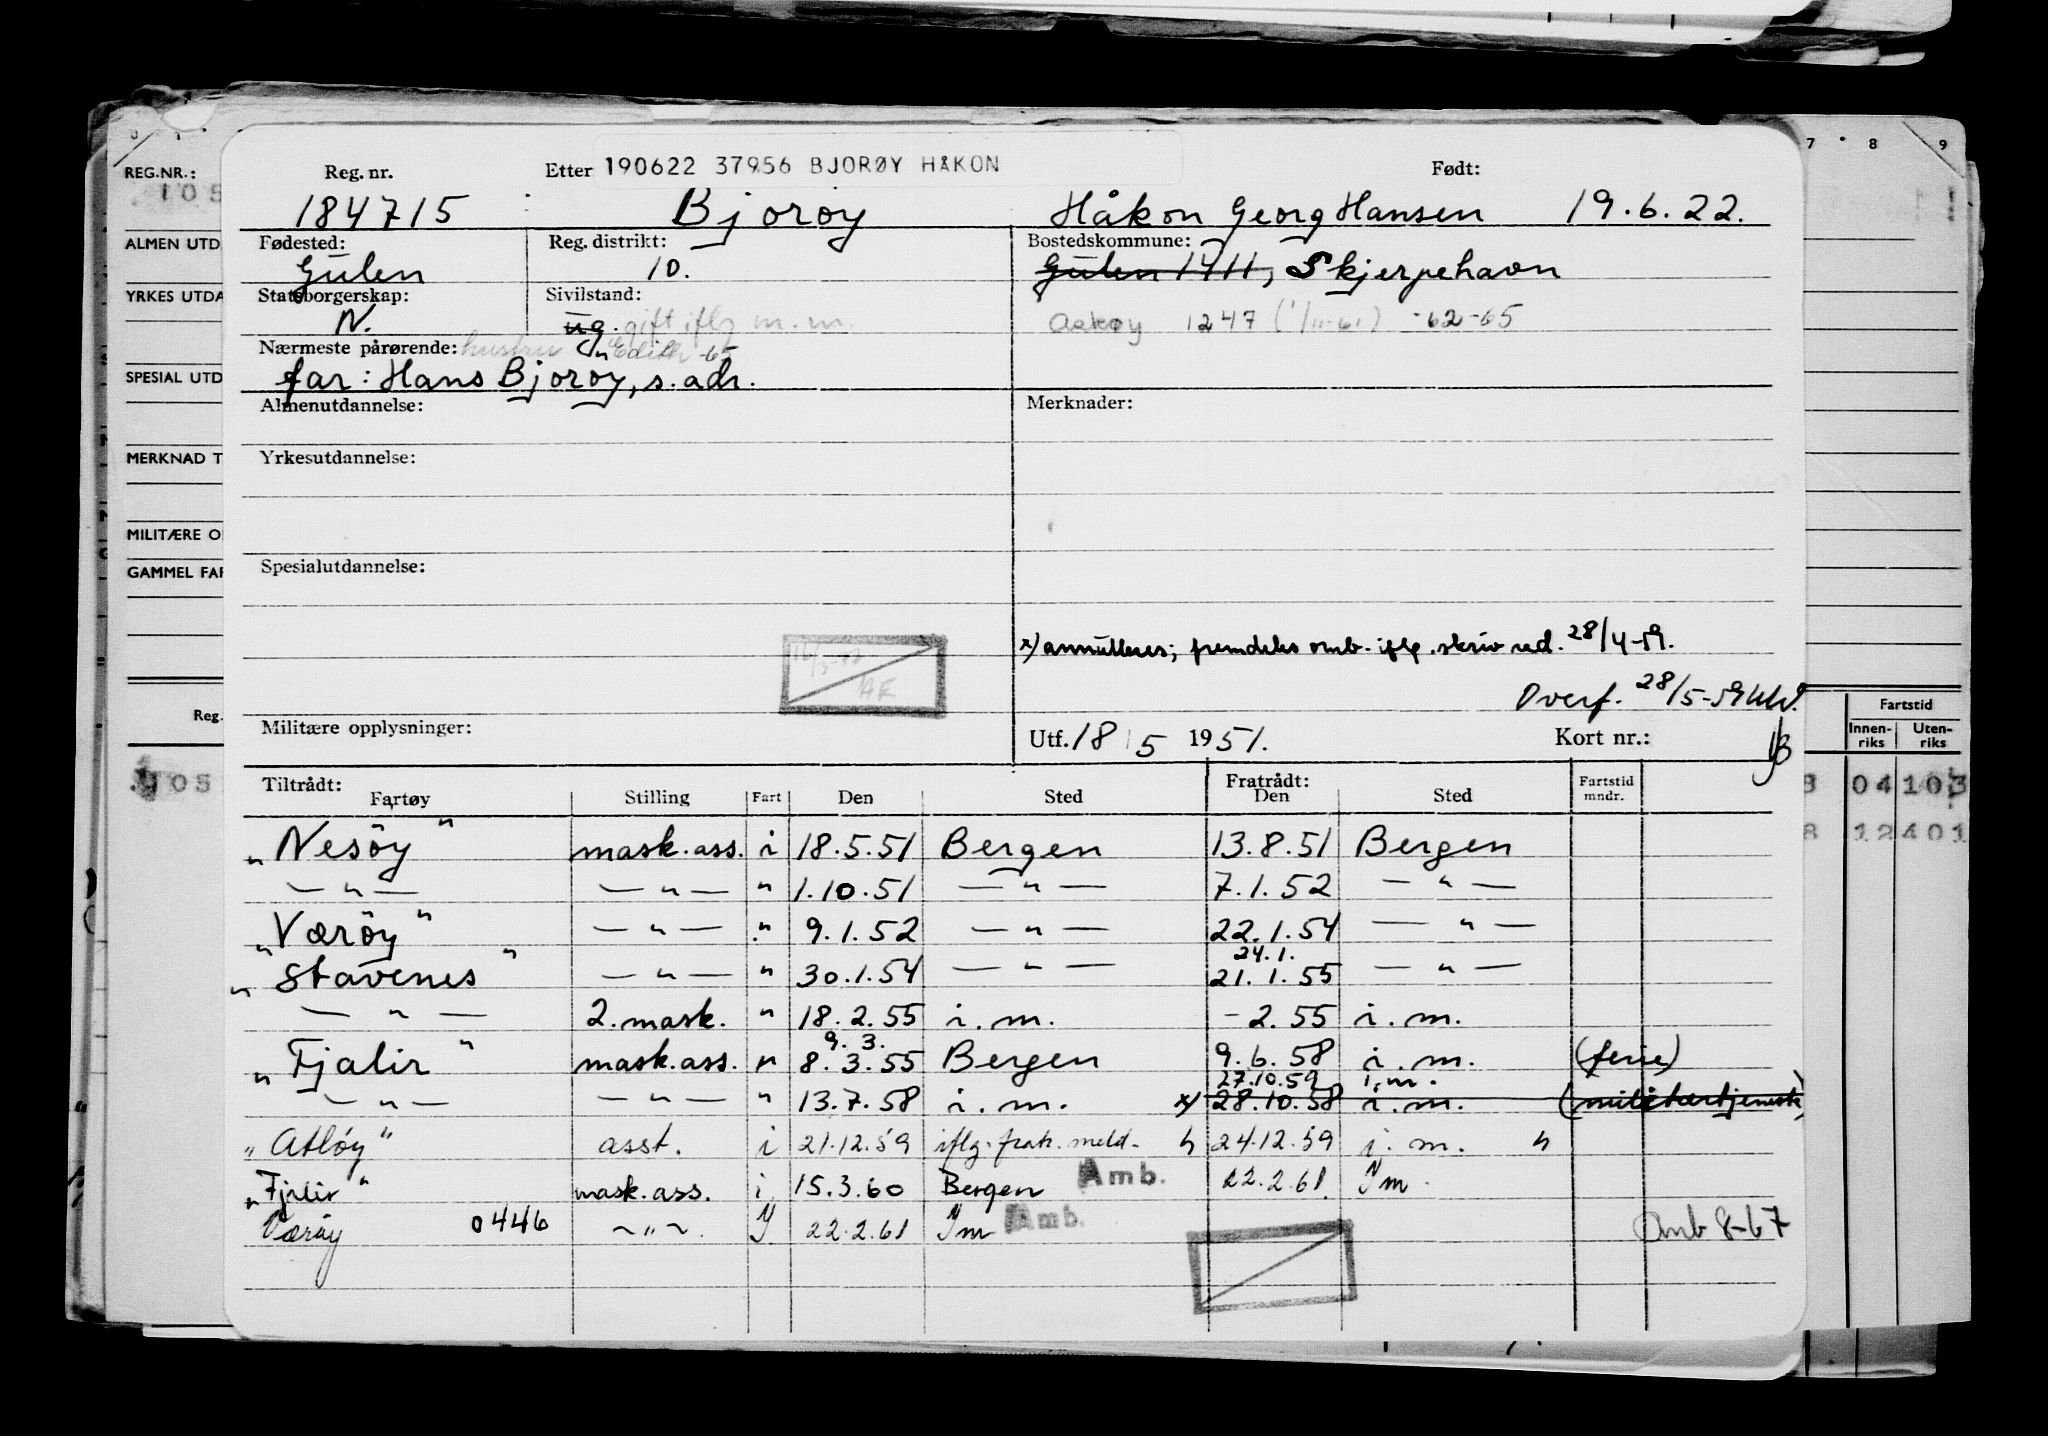 7 8 9
REG.NR.:
105
ALMEN UTD
YRKES UTDA
SPESIAL UTD
MERKNAD T
MILITÆRE O
GAMMEL FAR
Reg.
Reg. nr. Etter 190622 37956 BJORØY HÅKON Født:
184715 Bjorøy Håkon Georg Hansen 19.6.22.
Fødested: Reg. distrikt: Bostedskommune:
Gulen 10. Gulen 1411, Skjerjehavn
Statsborgerskap: Sivilstand:
N. ug. gift iflg m.m. Askøy 1247 (1/11-61) -62-65
Nærmeste pårørende: hustru Edith -65
far: Hans Bjorøy, s. adr.
Almenutdannelse: Merknader:
Yrkesutdannelse:
Spesialutdannelse:
x) annulleres; fremdeles omb. iflg. skriv red. 28/4-59.
Overf. 28/5-59
Militære opplysninger: Utf. 18/5 1951. Kort nr.:
Fartstid
Innen-riks Uten-riks
Tiltrådt: Fratrådt:
Fartøy Stilling Fart Den Sted Den Sted Fartstid mndr.
105 8 04 103
8 12 401
"Nesøy" mask.ass. i 18.5.51 Bergen 13.8.51 Bergen
— " — — " — " 1.10.51 — " — 7.1.52 — " —
"Værøy" — " — " 9.1.52 — " — 22.1.54 — " —
24.1.
"Stavenes" — " — " 30.1.54 — " — 21.1.55 — " —
— " — 2.mask. " 18.2.55 i.m. -2.55 i.m.
9. 3.
"Fjalir" mask.ass. " 8.3.55 Bergen 9.6.58 i.m. (ferie)
27.10.59 i.m.
— " — — " — " 13.7.58 i.m. x) 28.10.58 i.m. (militærtjeneste)
"Atløy" asst. i 21.12.59 iflg. fratr. meld. 24.12.59 i.m.
"Fjalir" mask.ass. i 15.3.60 Bergen Amb. 22.2.61 Im.
Værøy 0446 ~ " ~ I 22.2.61 Im Amb. Omb 8-67